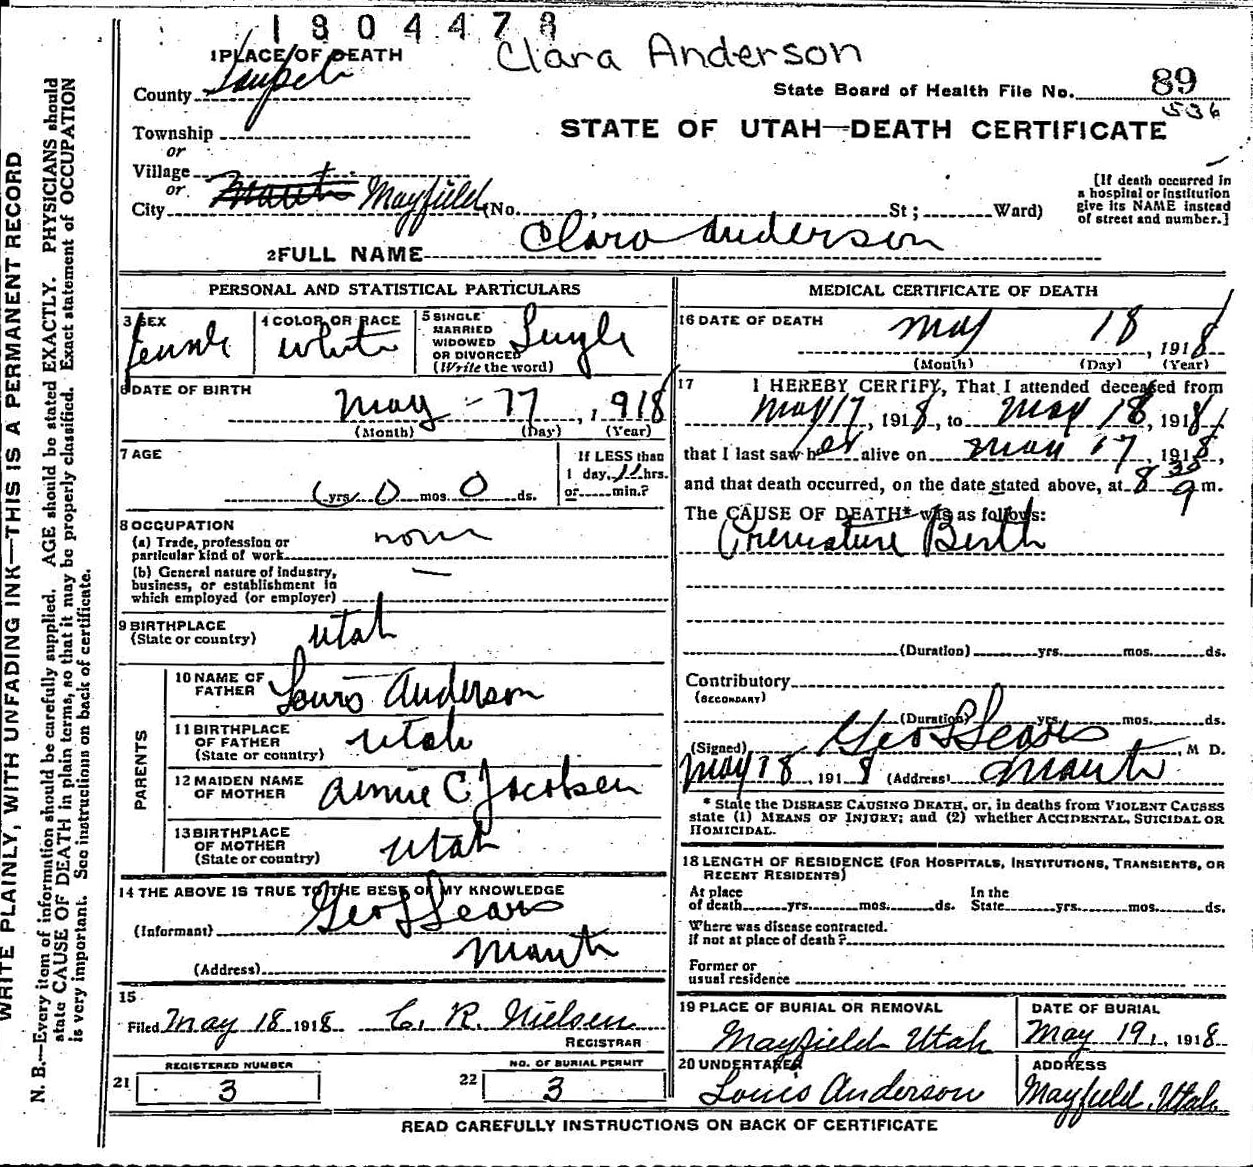 1804478
Clara Anderson
1 PLACE OF DEATH
County Sanpete
State Board of Health File No. 89
536
Township
or
STATE OF UTAH—DEATH CERTIFICATE
Village
or
City Manti Mayfield (No. , St ; Ward)
[If death occurred in
a hospital or institution
give its NAME instead
of street and number.]
2 FULL NAME Clara Anderson
PERSONAL AND STATISTICAL PARTICULARS
3 SEX
female
4 COLOR OR RACE
White
5 SINGLE
MARRIED
WIDOWED
OR DIVORCED
(Write the word)
Single
6 DATE OF BIRTH
May - 17, 1918
(Month) (Day) (Year)
7 AGE
yrs 0 mos. 0 ds.
If LESS than
1 day, 11 hrs.
or min.?
8 OCCUPATION
(a) Trade, profession or
particular kind of work none
(b) General nature of industry,
business, or establishment in
which employed (or employer) —
9 BIRTHPLACE
(State or country) Utah
PARENTS
10 NAME OF
FATHER Louis Anderson
11 BIRTHPLACE
OF FATHER
(State or country) Utah
12 MAIDEN NAME
OF MOTHER Annie C Jacobsen
13 BIRTHPLACE
OF MOTHER
(State or country) Utah
14 THE ABOVE IS TRUE TO THE BEST OF MY KNOWLEDGE
(Informant) Geo L Sears
(Address) Manti
15
Filed May 18 1918 C. R. Nielsen
REGISTRAR
REGISTERED NUMBER
21 3
NO. OF BURIAL PERMIT
22 3
MEDICAL CERTIFICATE OF DEATH
16 DATE OF DEATH
May 18, 1918
(Month) (Day) (Year)
17 I HEREBY CERTIFY, That I attended deceased from
May 17, 1918, to May 18, 1918,
that I last saw her alive on May 17, 1918,
and that death occurred, on the date stated above, at 8 30 a m.
The CAUSE OF DEATH* was as follows:
Premature Birth
(Duration) yrs. mos. ds.
Contributory
(SECONDARY)
(Duration) yrs. mos. ds.
(Signed) Geo L Sears, M D.
May 18, 1918 (Address) Manti
* State the DISEASE CAUSING DEATH, or, in deaths from VIOLENT CAUSES
state (1) MEANS OF INJURY; and (2) whether ACCIDENTAL, SUICIDAL OR
HOMICIDAL.
18 LENGTH OF RESIDENCE (FOR HOSPITALS, INSTITUTIONS, TRANSIENTS, OR
RECENT RESIDENTS)
At place
of death yrs. mos. ds.
In the
State yrs. mos. ds.
Where was disease contracted.
if not at place of death?
Former or
usual residence
19 PLACE OF BURIAL OR REMOVAL
Mayfield Utah
DATE OF BURIAL
May 19, 1918
20 UNDERTAKER
Louis Anderson
ADDRESS
Mayfield, Utah
READ CAREFULLY INSTRUCTIONS ON BACK OF CERTIFICATE
WRITE PLAINLY, WITH UNFADING INK—THIS IS A PERMANENT RECORD
N. B.—Every item of information should be carefully supplied. AGE should be stated EXACTLY. PHYSICIANS should
state CAUSE OF DEATH in plain terms, so that it may be properly classified. Exact statement of OCCUPATION
is very important. See instructions on back of certificate.